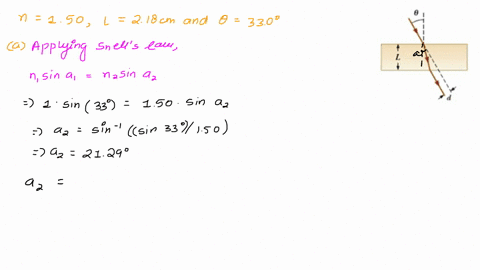 n = 1.50, L = 2.18cm and θ = 33.0°
(a) Applying snell's law,
n₁ sin a₁ = n₂ sin a₂
=> 1 · sin (33°) = 1.50 · sin a₂
=> a₂ = sin⁻¹ ((sin 33°)/1.50)
=> a₂ = 21.29°
a₂ =
θ
a₂
L
d